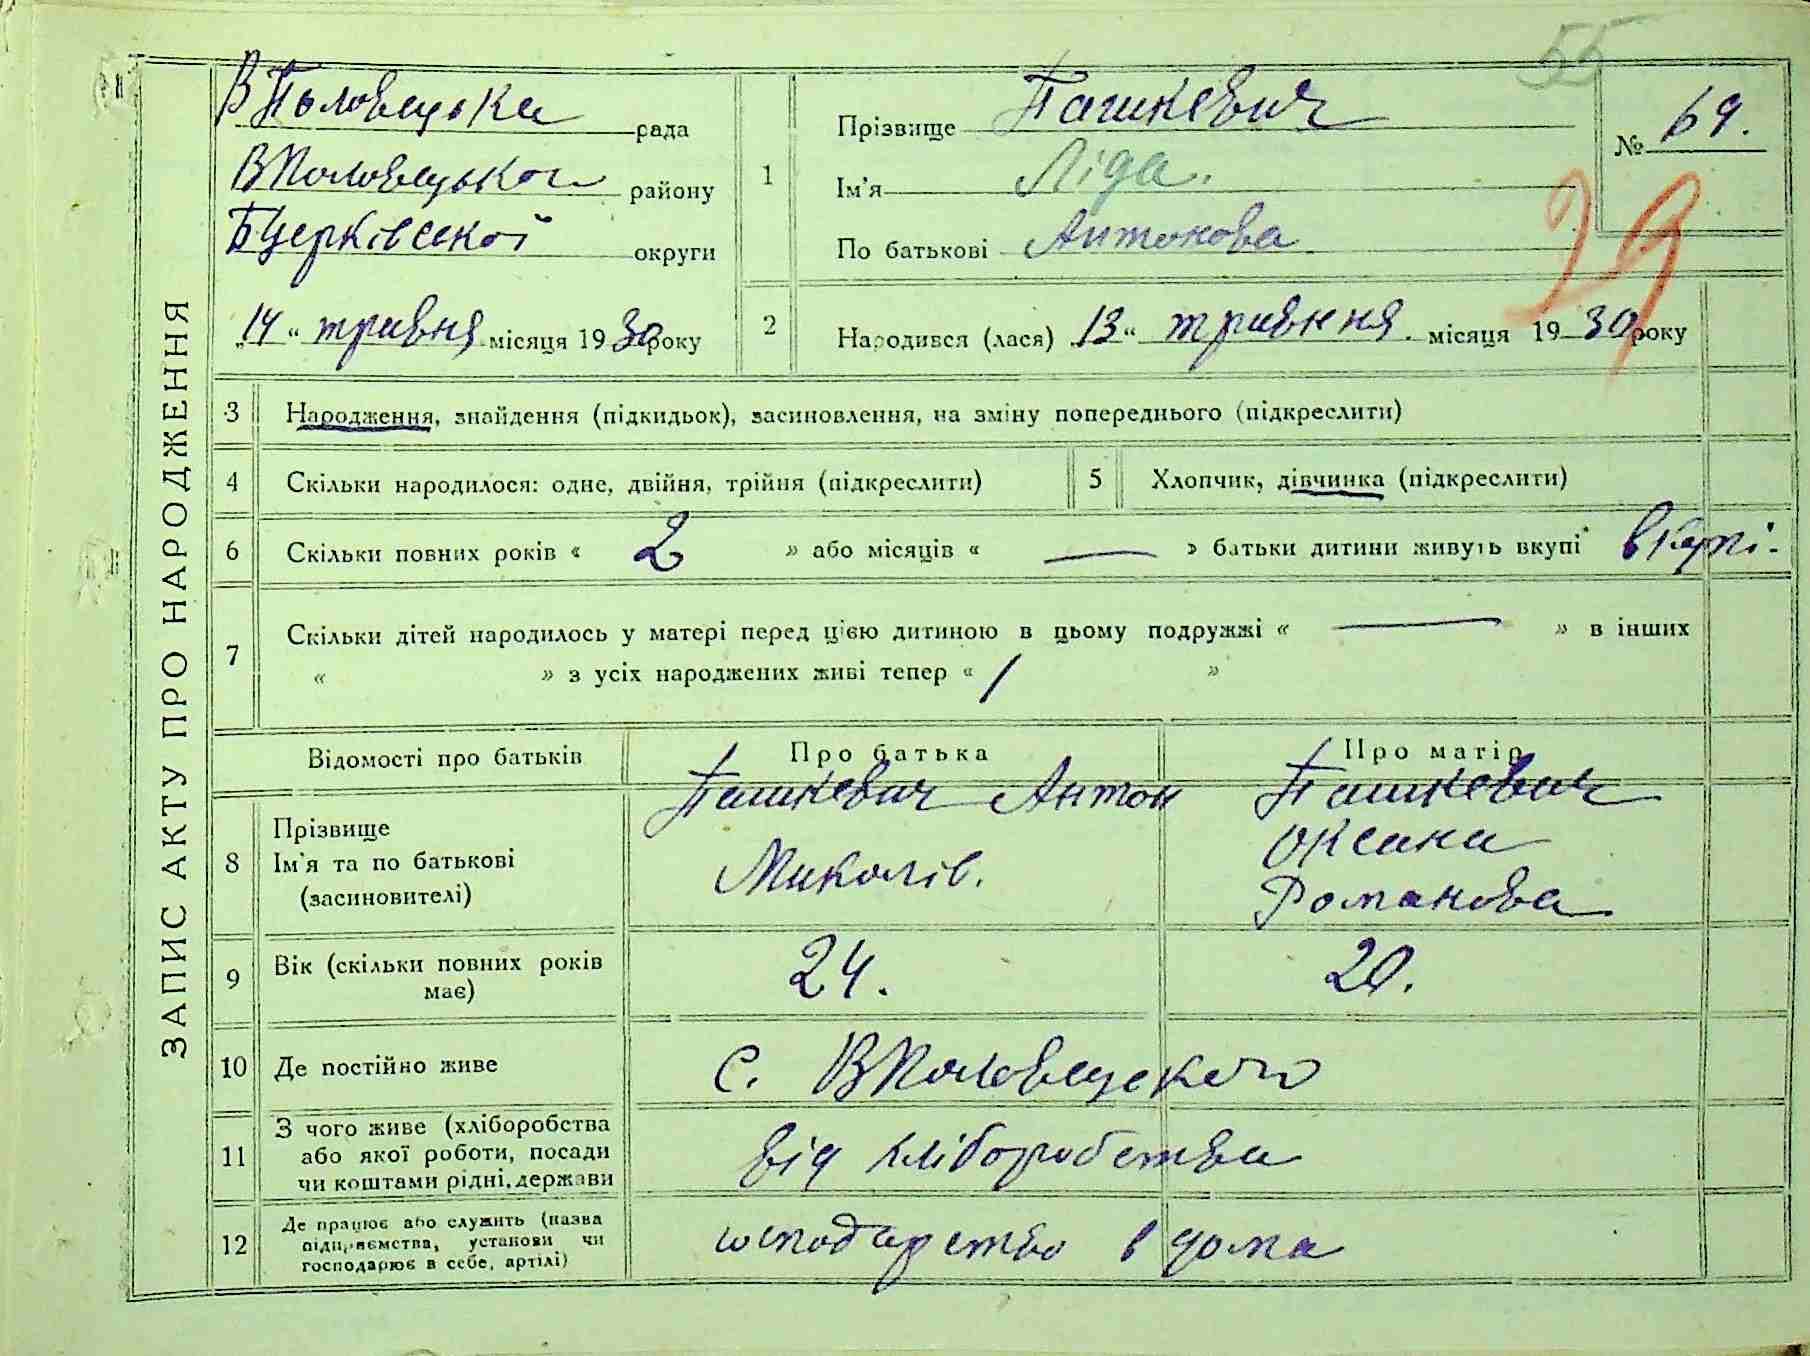 55
ЗАПИС АКТУ ПРО НАРОДЖЕННЯ
В Половецька рада
ВПоловецького району
БЦерківської округи
„14“ травня місяця 1930 року
1
Прізвище Пашкевич
Ім’я Ліда.
По батькові Антонова
№ 69.
29
2
Народився (лася) „13“ травння. місяця 1930 року
3 Народження, знайдення (підкидьок), засиновлення, на зміну попереднього (підкреслити)
4 Скільки народилося: одне, двійня, трійня (підкреслити) 5 Хлопчик, дівчинка (підкреслити)
6 Скільки повних років « 2 » або місяців « — » батьки дитини живуть вкупі
7 Скільки дітей народилось у матері перед цією дитиною в цьому подружжі « — » в інших
« » з усіх народжених живі тепер « 1 »
Відомості про батьків Про батька Про матір
8 Прізвище
Ім’я та по батькові
(засиновителі)
Пашкевич Антон
Миколів.
Пашкевич
Оксана
Романова
9 Вік (скільки повних років
має)
24. 20.
10 Де постійно живе с. ВПоловецького
11 З чого живе (хліборобства
або якої роботи, посади
чи коштами рідні, держави
від хліборобства
12 Де працює або служить (назва
підприємства, установи чи
господарює в себе, артілі)
господарство в дома